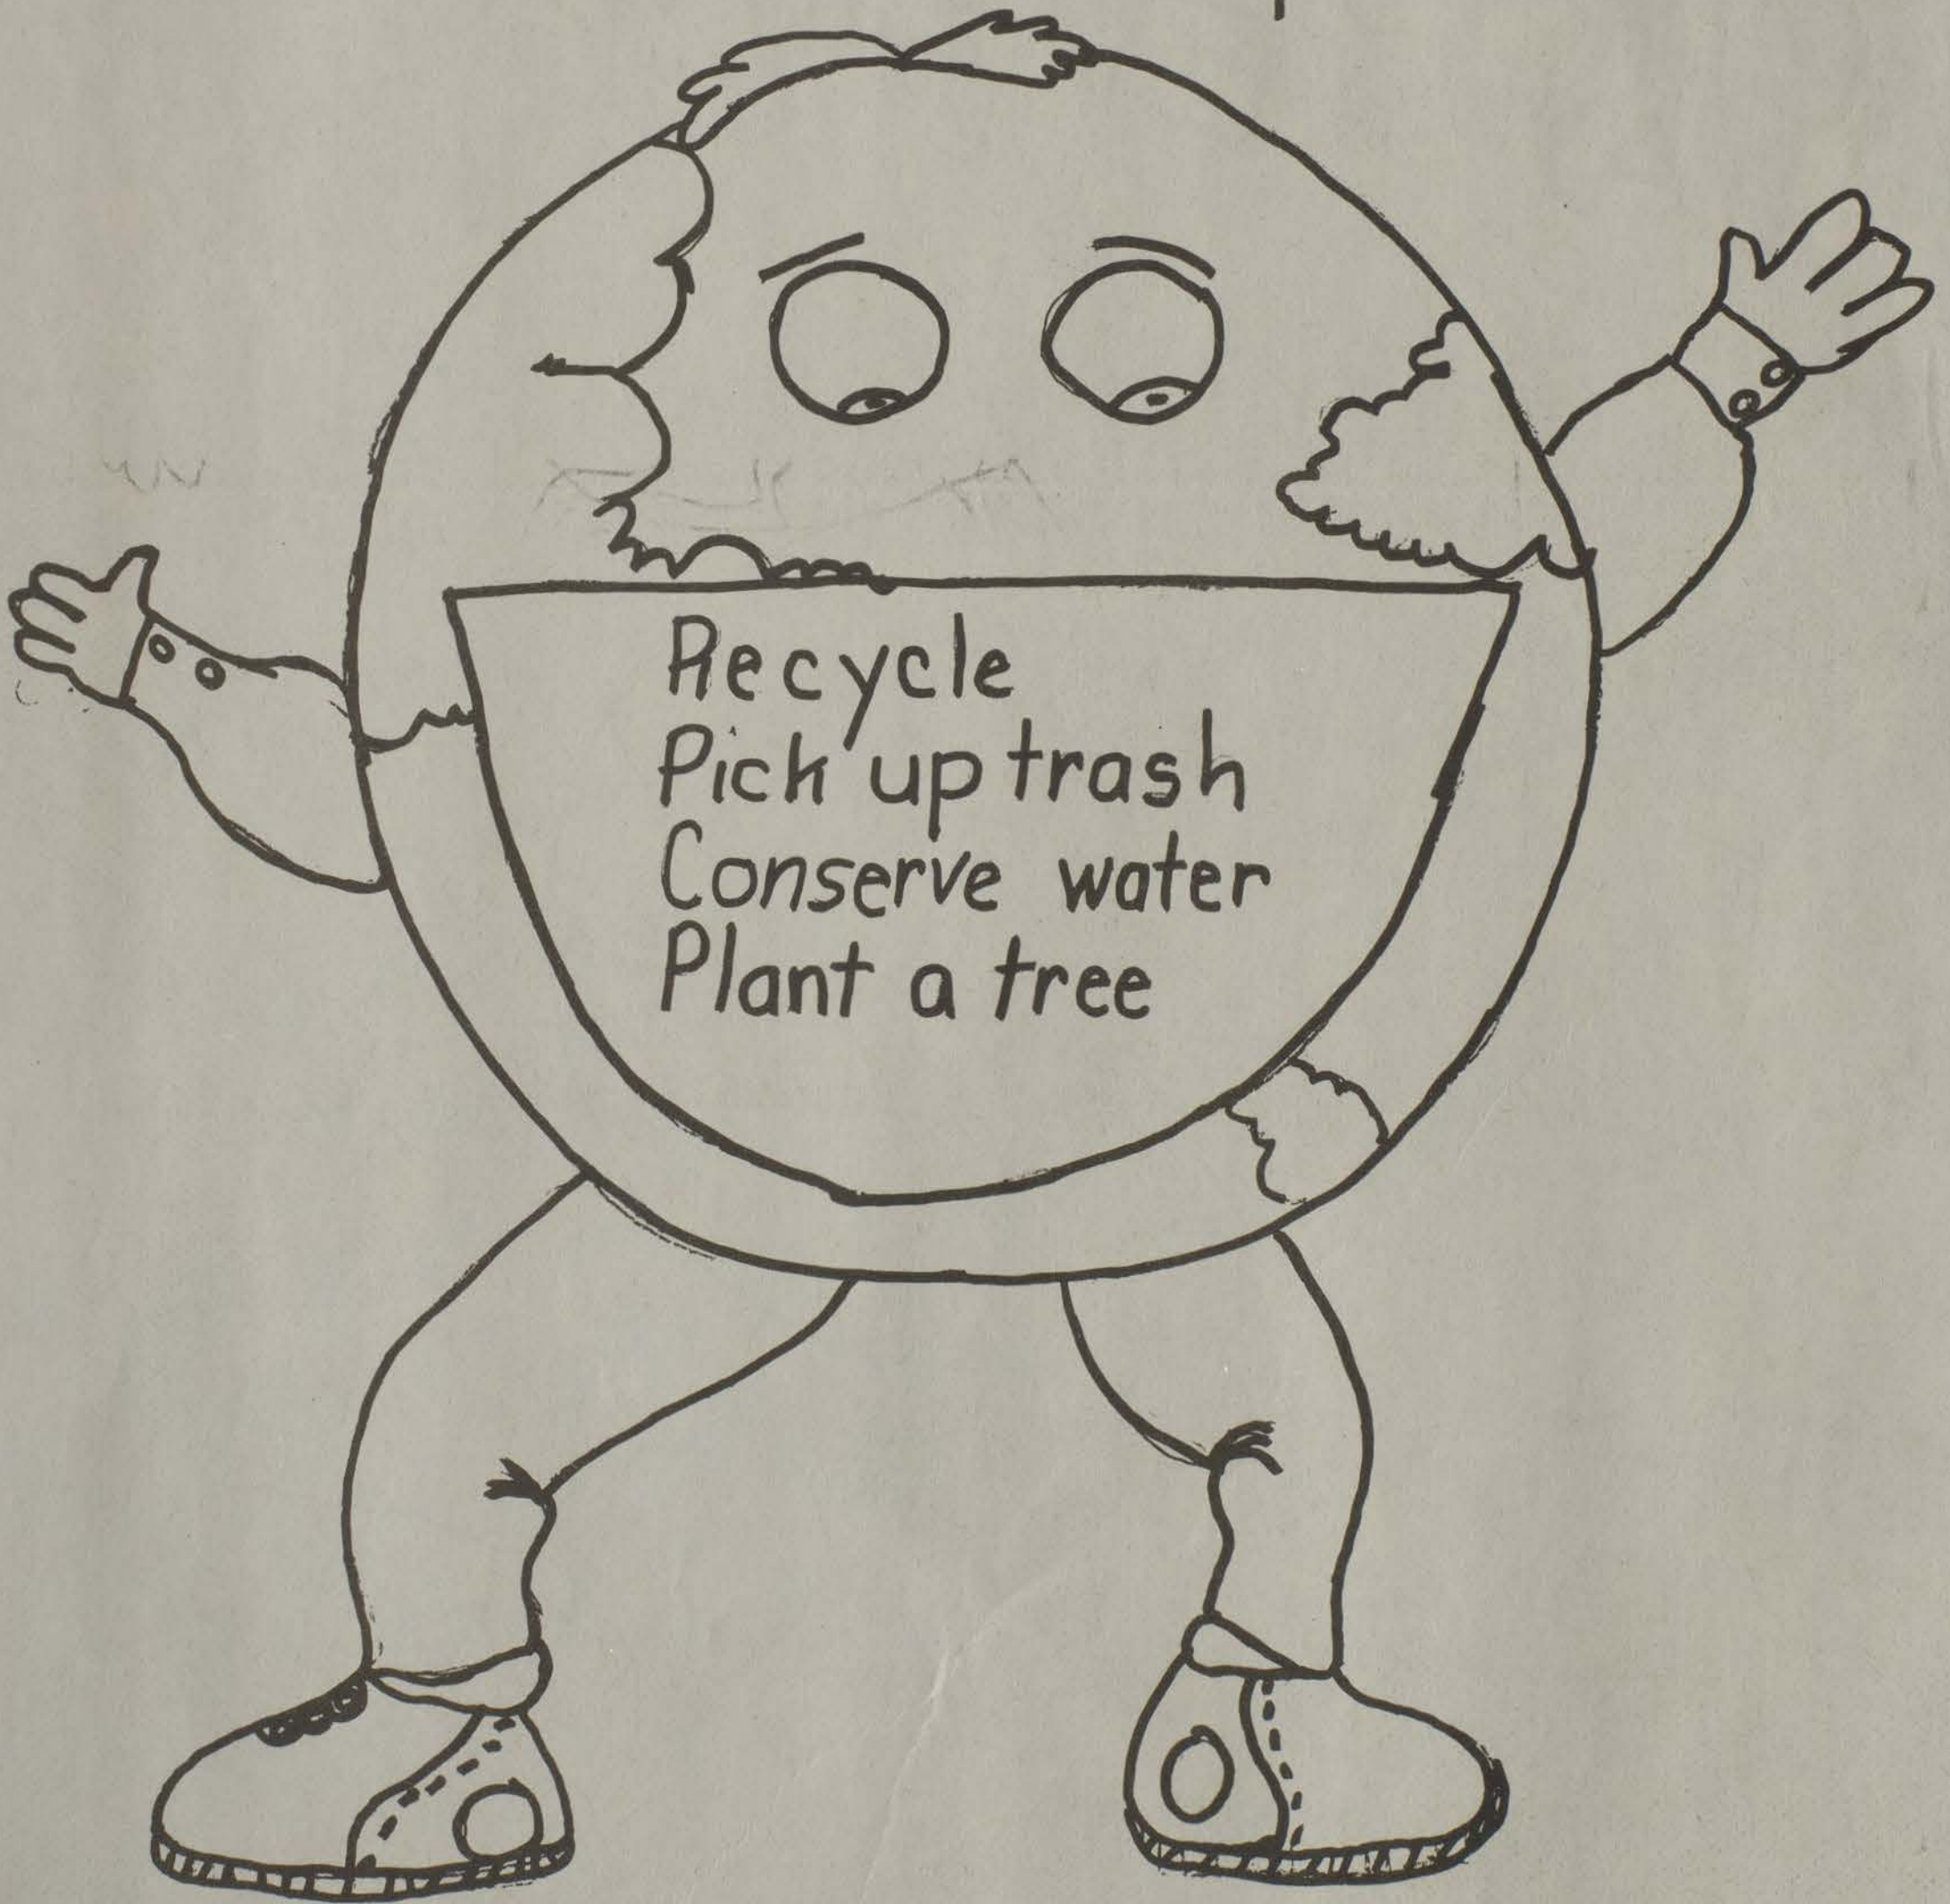 Recycle
Pick up trash
Conserve water
Plant a tree